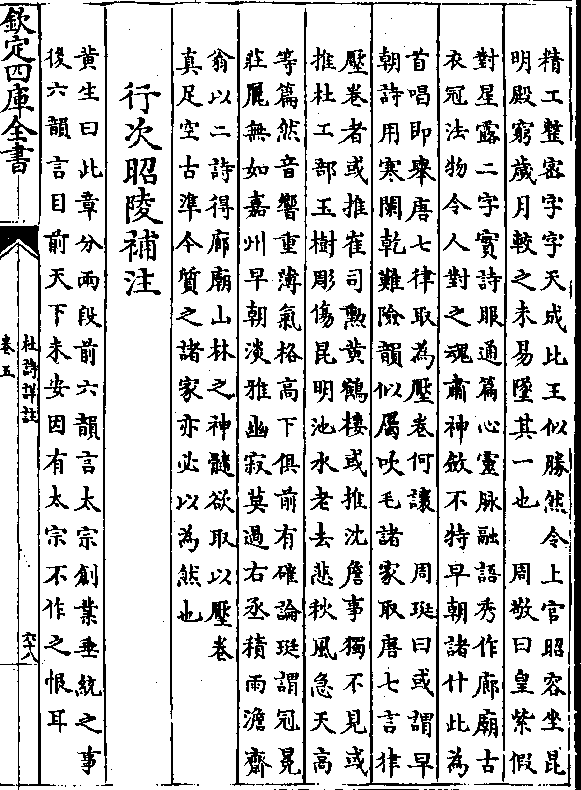 精工整密字字天成比王似勝然令上官昭容坐昆
明殿窮歲月較之未易墜其一也　周敬曰皇紫假
對星露二字實詩服通篇心靈脉融語秀作廊廟古
衣冠法物令人對之魂肅神斂不特早朝諸什此為
首唱即舉唐七律取為壓卷何讓　周珽曰或謂早
朝詩用寒闌乾難險韻似屬吹毛諸家取唐七言律
壓卷者或推崔司勲黄鶴樓或推沈詹事獨不見或
推杜工部玉樹彫傷昆明池水老去悲秋風急天高
等篇然音響重薄氣格高下俱前有確論珽謂冠冕
莊麗無如嘉州早朝淡雅幽寂莫過右丞積雨澹齋
翁以二詩得廊廟山林之神髓欲取以壓卷
真足空古準今質之諸家亦必以為然也
行次昭陵補注
黄生曰此章分兩段前六韻言太宗創業垂統之事
後六韻言目前天下未安因有太宗不作之恨耳
欽定四庫全書
杜詩詳註
卷五
六十八